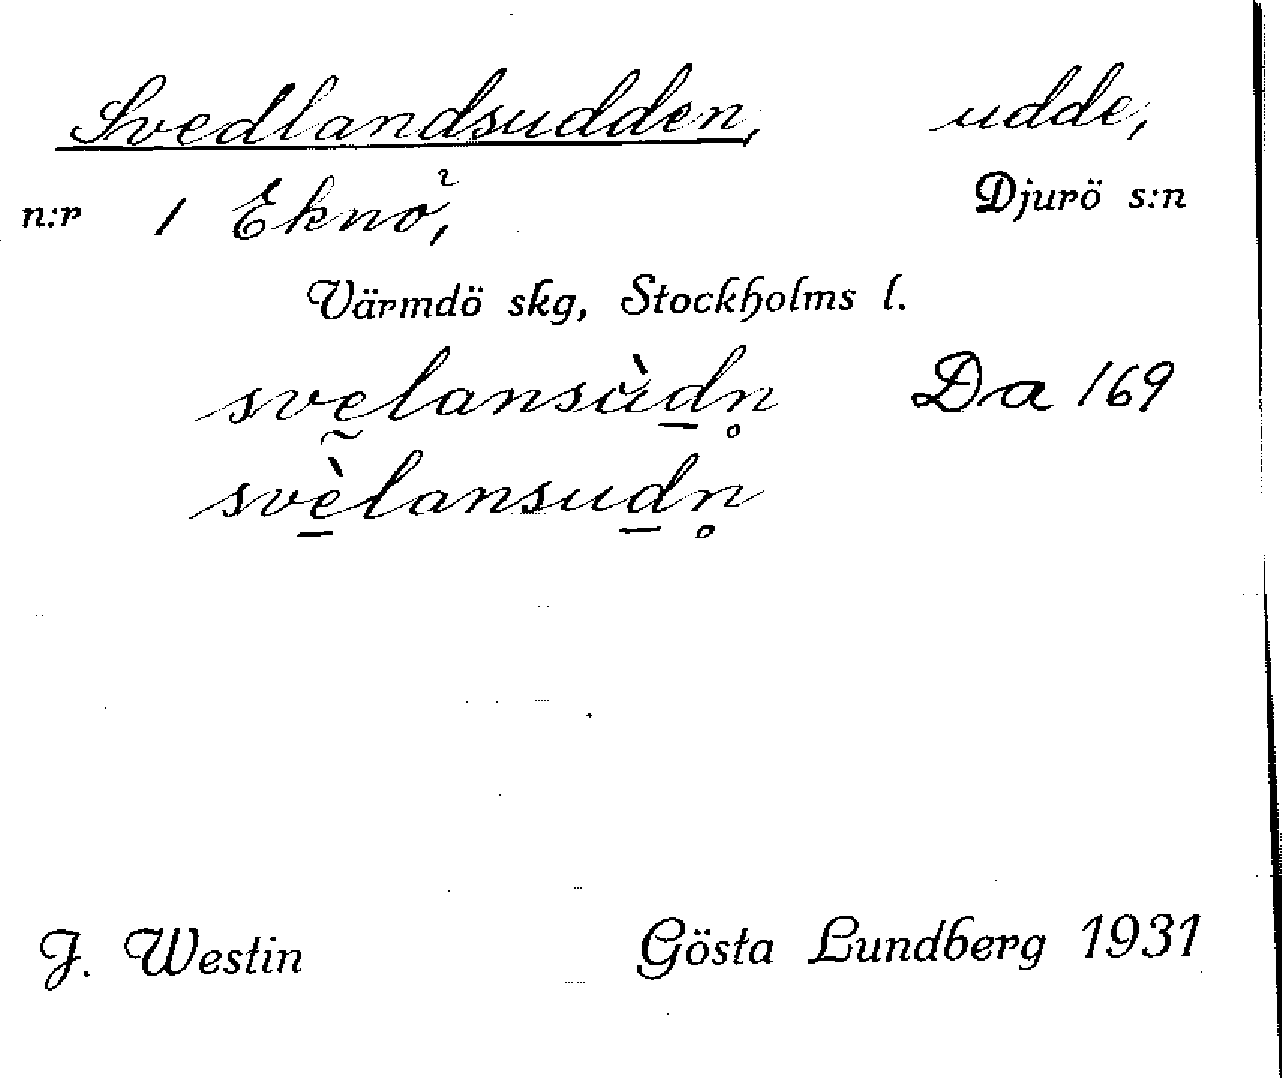 Svedlandsudden, udde,
n:r 1 Eknö, Djurö s:n
Värmdö skg, Stockholms l.
svę̰lansùd̲n̥ Da 169
svè̲lansud̲n̥
J. Westin Gösta Lundberg 1931